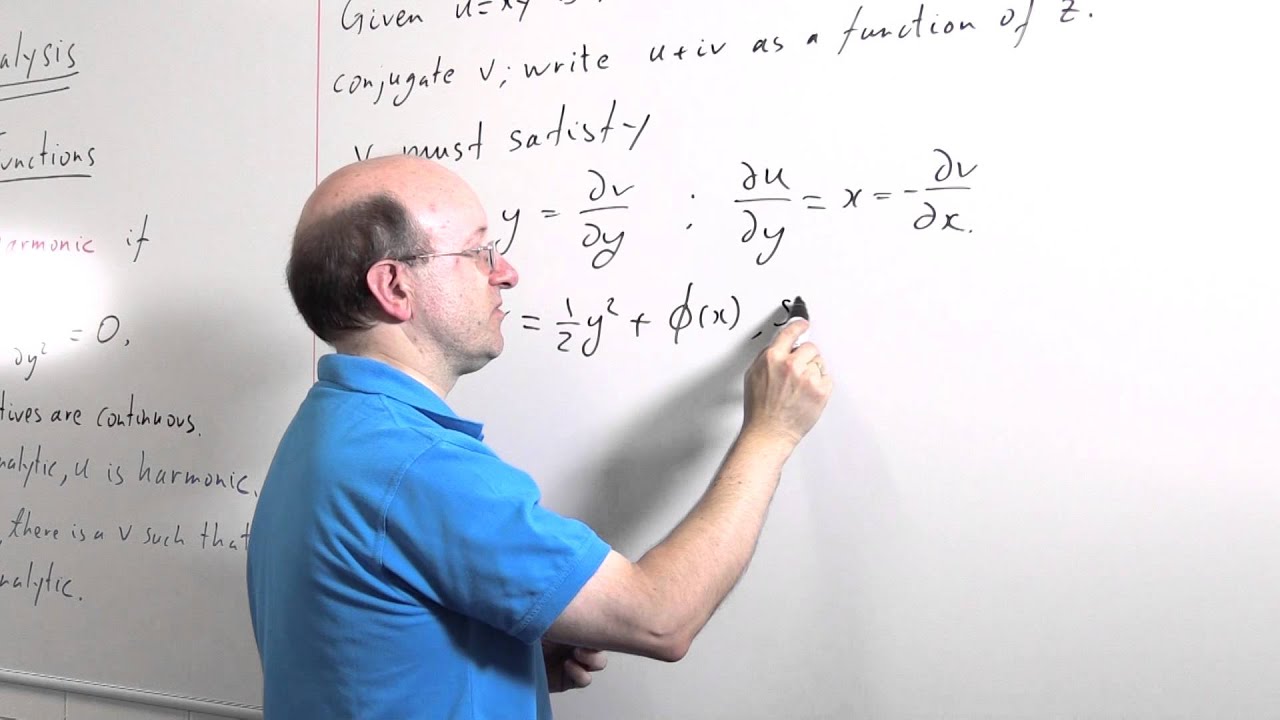 alysis
Functions
harmonic if
∂y² = 0,
tives are continuous.
nalytic, u is harmonic.
, there is a v such that
nalytic.
Given u=xy is
conjugate v; write u+iv as a function of z.
v must satisfy
y = ∂v/∂y ; ∂u/∂y = x = -∂v/∂x.
= ½y² + ϕ(x), s